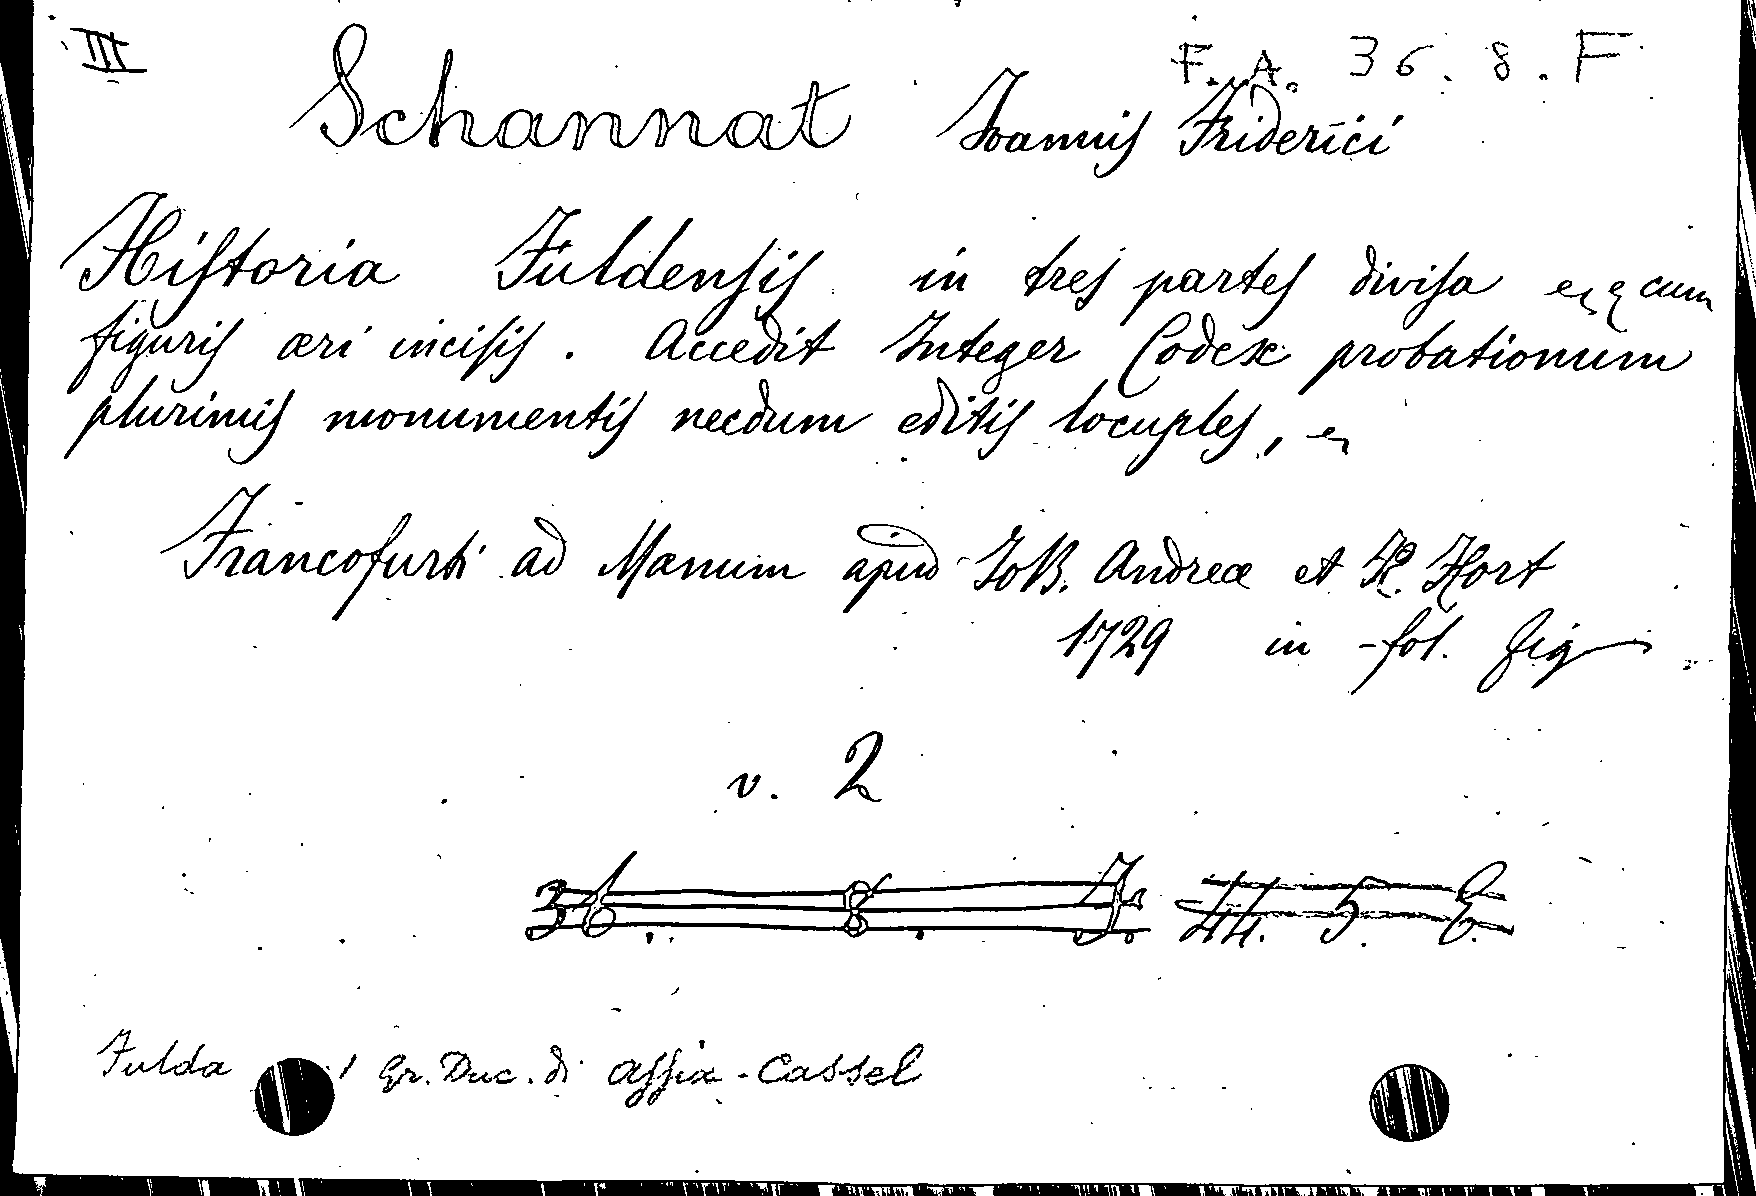 III
F. A. 36. 8. F
Schannat Joannis Friderici
Historia Fuldensis in tres partes divisa cum
figuris æri incisis. Accedit Integer Codex probationum
plurimis monumentis necdum editis locuples,
Francofurti ad Mœnum apud Joh. Andreæ et H. Hort
1729 in-fol. fig
v. 2
36. 8. F. 44. 5. E.
Fulda Gr. Duc. di Assia-Cassel